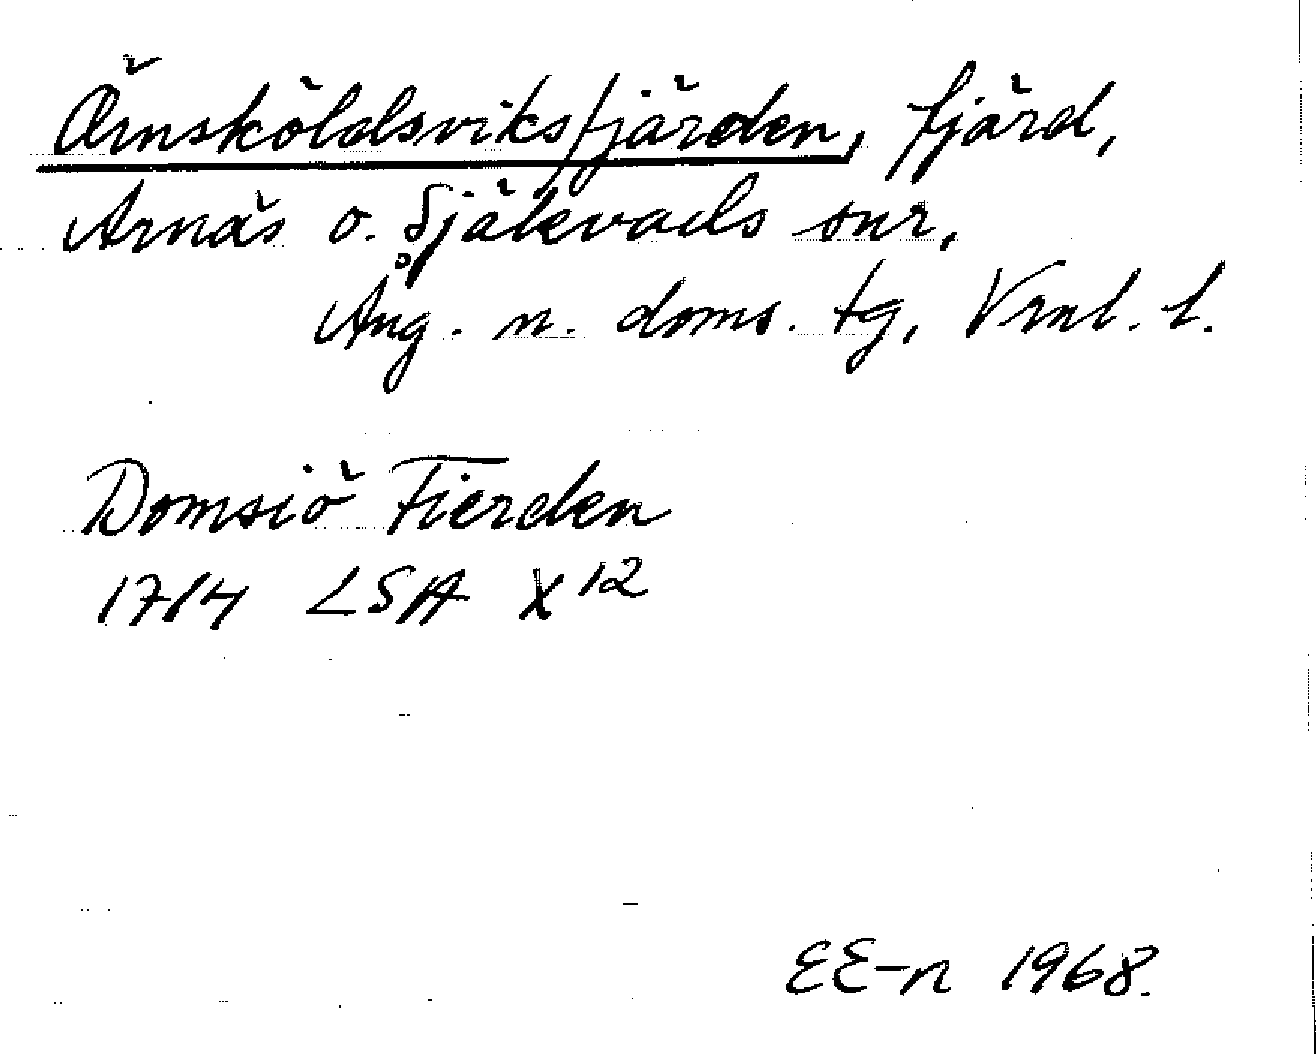 Örnsköldsviksfjärden, fjärd,
Arnäs o. Själevads snr,
Ång. n. doms. tg, Vrnl. l.
Domsiö Fierden
1714 LSA X12
EE-n 1968.